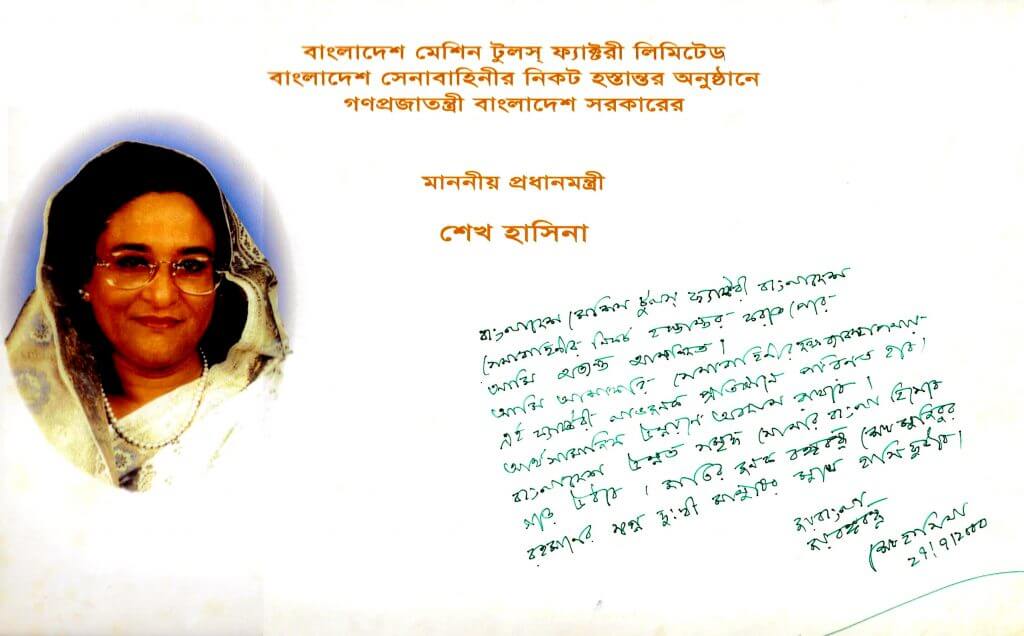 বাংলাদেশ মেশিন টুলস্ ফ্যাক্টরী লিমিটেড
বাংলাদেশ সেনাবাহিনীর নিকট হস্তান্তর অনুষ্ঠানে
গণপ্রজাতন্ত্রী বাংলাদেশ সরকারের
মাননীয় প্রধানমন্ত্রী
শেখ হাসিনা
বাংলাদেশ মেশিন টুলস্ ফ্যাক্টরী বাংলাদেশ
সেনাবাহিনীর নিকট হস্তান্তর করতে পেরে
আমি অত্যন্ত আনন্দিত।
আমি আশাবাদি সেনাবাহিনীর সুষ্ঠু ব্যবস্থাপনায়
এই ফ্যাক্টরী লাভজনক প্রতিষ্ঠানে পরিনত হবে।
আর্থসামাজিক উন্নয়নে অবদান রাখবে।
বাংলাদেশ উন্নত সমৃদ্ধ সোনার বাংলা হিসেবে
গড়ে উঠবে। জাতির জনক বঙ্গবন্ধু শেখ মুজিবুর
রহমানের স্বপ্ন দুঃখী মানুষের মুখে হাসি ফুটবে।
জয়বাংলা
জয়বঙ্গবন্ধু
শেখ হাসিনা